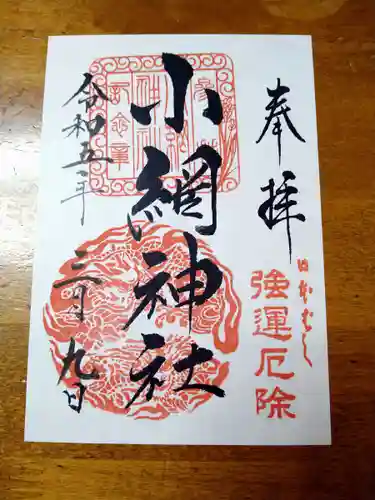 奉拝
日本ばし
強運厄除
小網神社
令和五年
三月九日